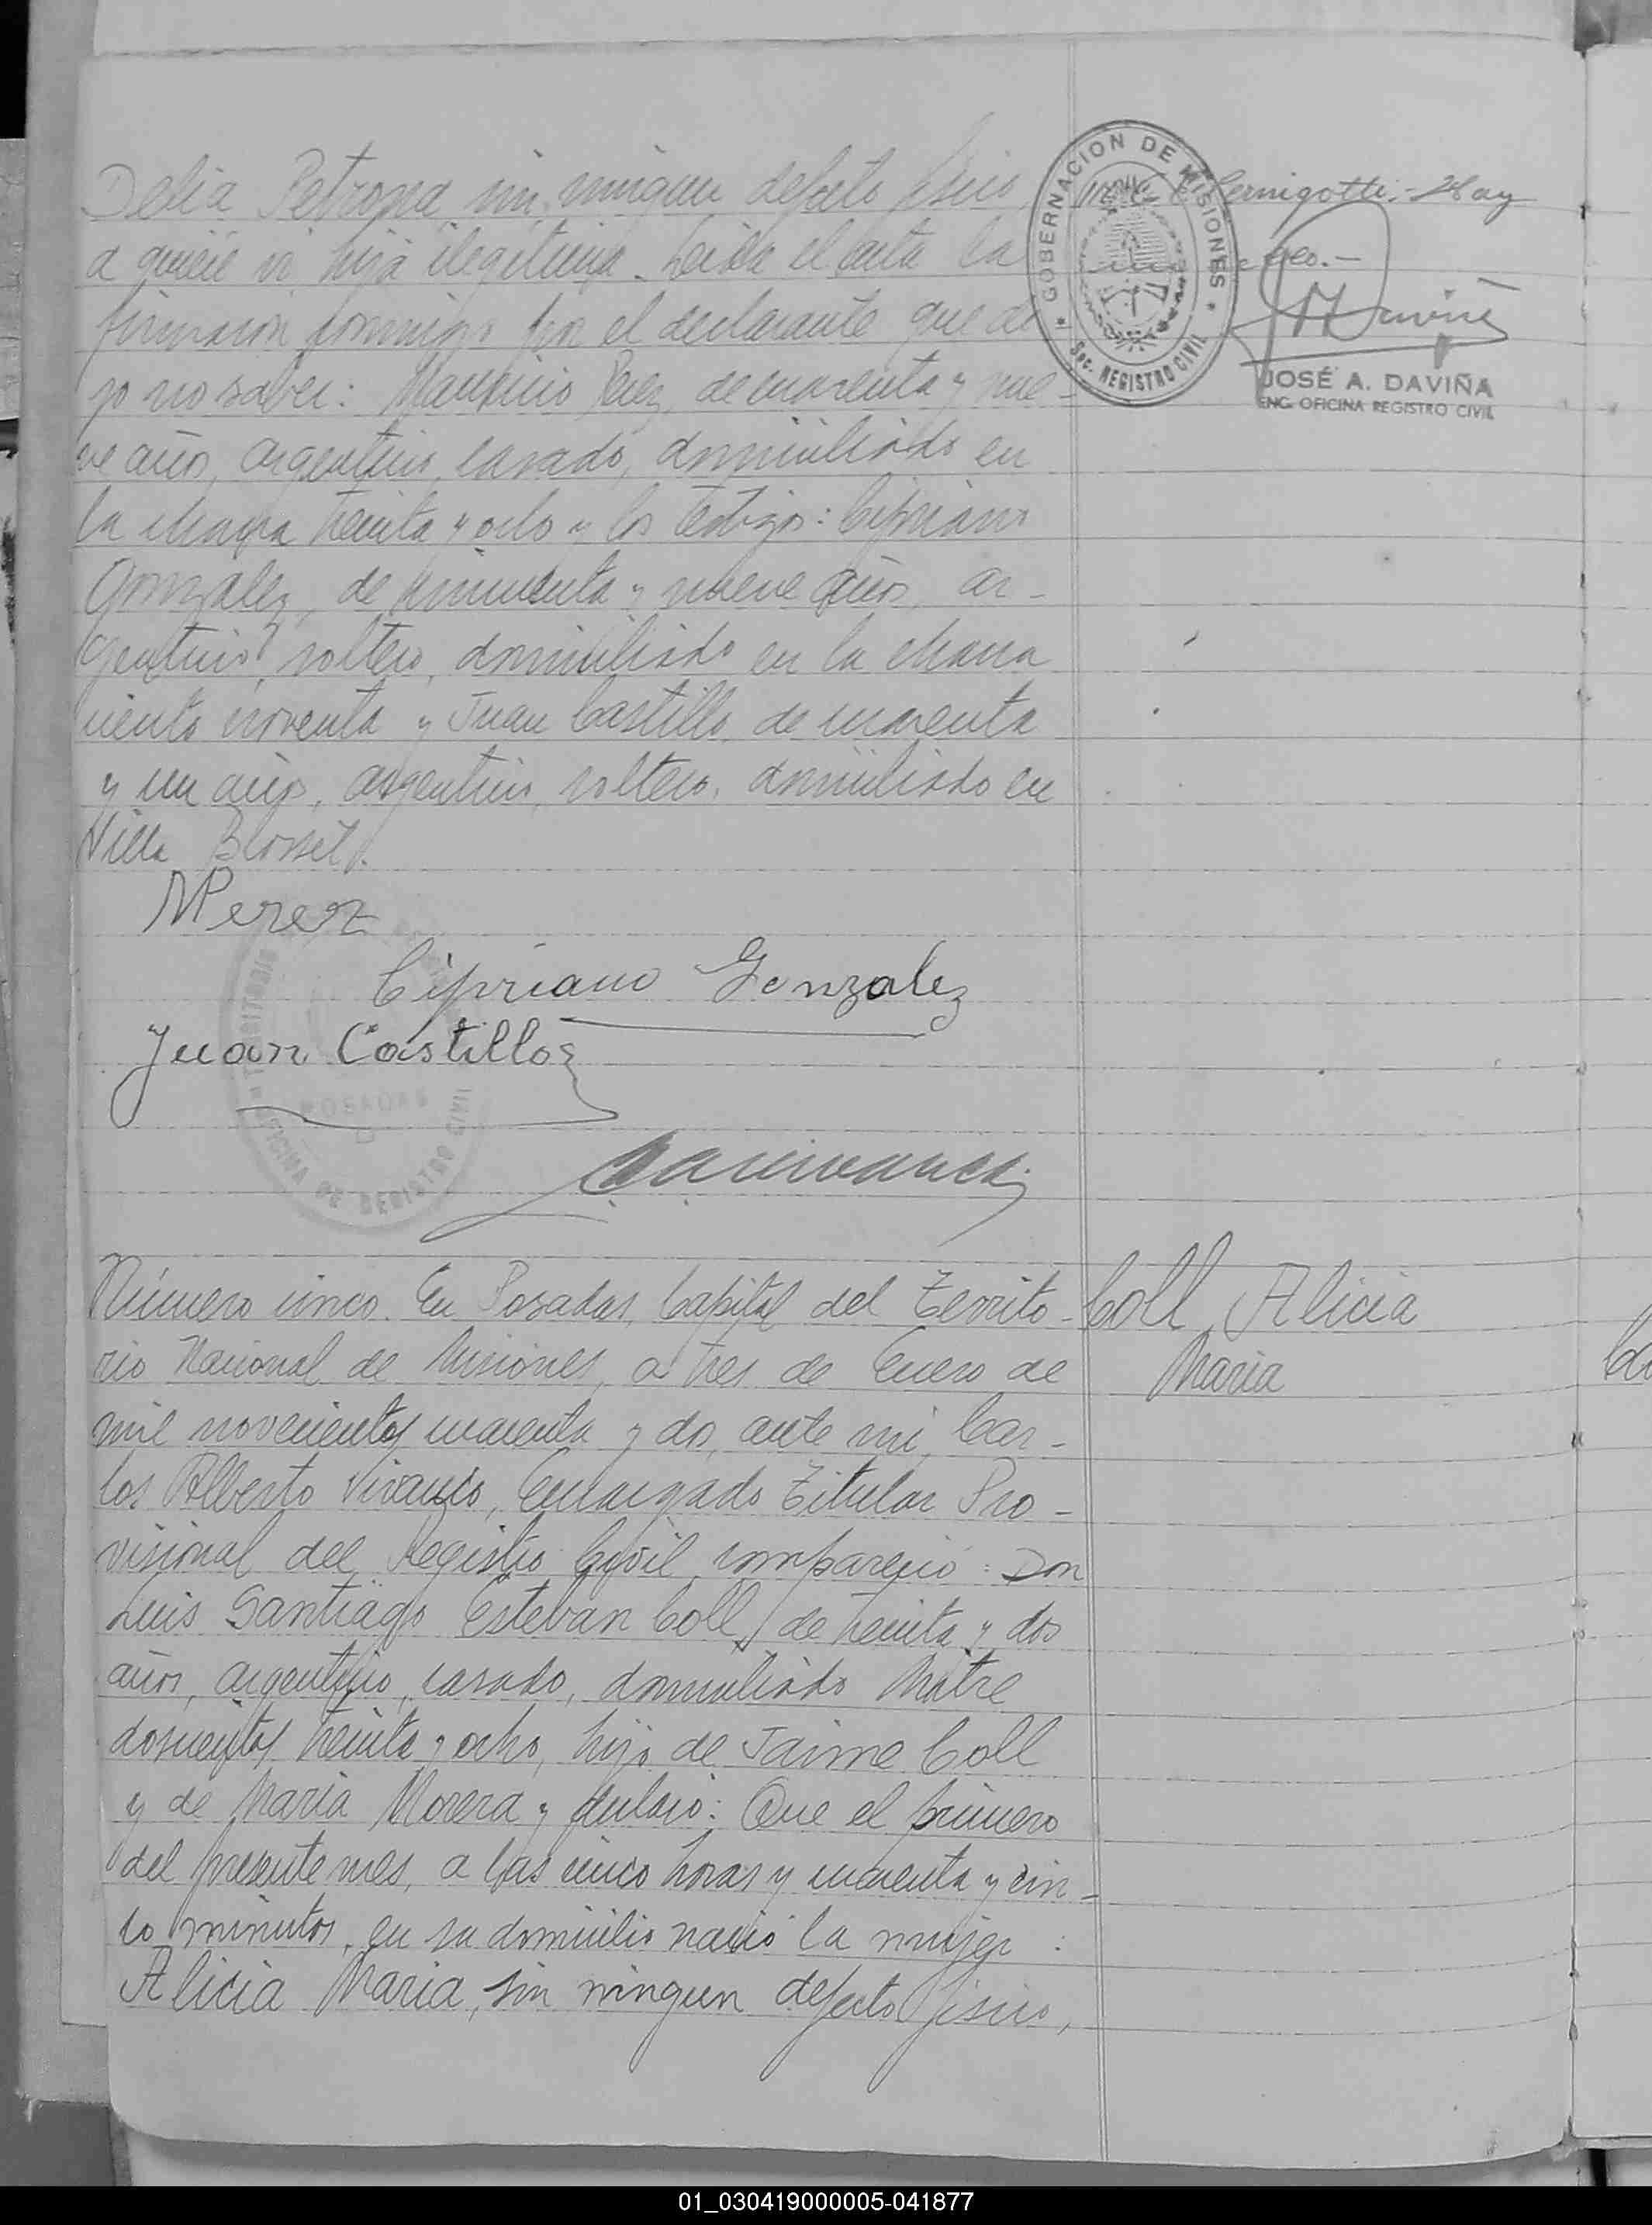 Delia Petrona sin ningun defecto fisico,
a quien vi hija ilegitima. Leida el acta la
firmaron conmigo por el declarante que di
jo no saber: Mauricio Perez, de cuarenta y nue-
ve años, argentino, casado, domiciliado en
la chacra treinta y ocho y los testigos: Cipriano
Gonzalez, de cincuenta y nueve años, ar-
gentino, soltero, domiciliado en la chacra
ciento noventa y Juan Castillo de cuarenta
y un años, argentino, soltero, domiciliado en
Villa Blosset.
MPerez
Cipriano Gonzalez
Juan Castillo
POSADAS
OFICINA DE REGISTRO CIVIL
GOBERNACION DE MISIONES
Sec. REGISTRO CIVIL
Pernigotti.- Hay
JOSÉ A. DAVIÑA
ENC. OFICINA REGISTRO CIVIL
Número cinco. En Posadas, Capital del Territo-
rio Nacional de Misiones, a tres de Enero de
mil novecientos cuarenta y dos, ante mi, Car-
los Alberto Vivanco, Encargado Titular Pro-
visional del Registro Civil, compareció: Don
Luis Santiago Esteban Coll, de treinta y dos
años, argentino, casado, domiciliado Mitre
doscientos treinta y ocho, hijo de Jaime Coll
y de Maria Morera y declaró: Que el primero
del presente mes, a las cinco horas y cuarenta y cin-
co minutos, en su domicilio nació la mujer:
Alicia Maria, sin ningun defecto fisico,
Coll Alicia
Maria
01_030419000005-041877